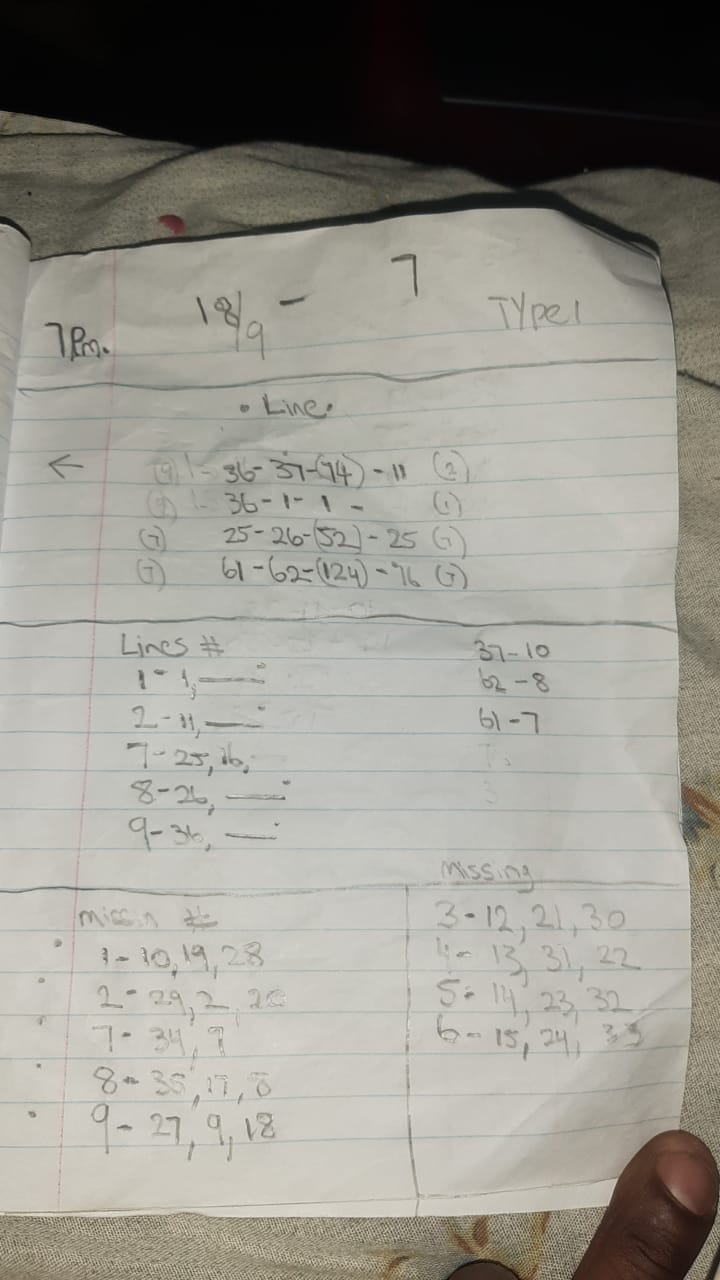 18/9 - 7
7Pm. Type 1
• Line •
← (9) 1- 36-37-(74)-11 (2)
(9) 1- 36-1-1- (1)
(7) 25-26-(52)-25 (7)
(7) 61-62-(124)-76 (7)
Lines #
1-1,
2-11,
7-25, 16,
8-26,
9-36,
37-10
62-8
61-7
3
Missin #
1-10, 19, 28
2-29, 2, 20
7-34, 7
8-35, 17, 8
9-27, 9, 18
Missing
3-12, 21, 30
4-13, 31, 22
5-14, 23, 32
6-15, 24, 33